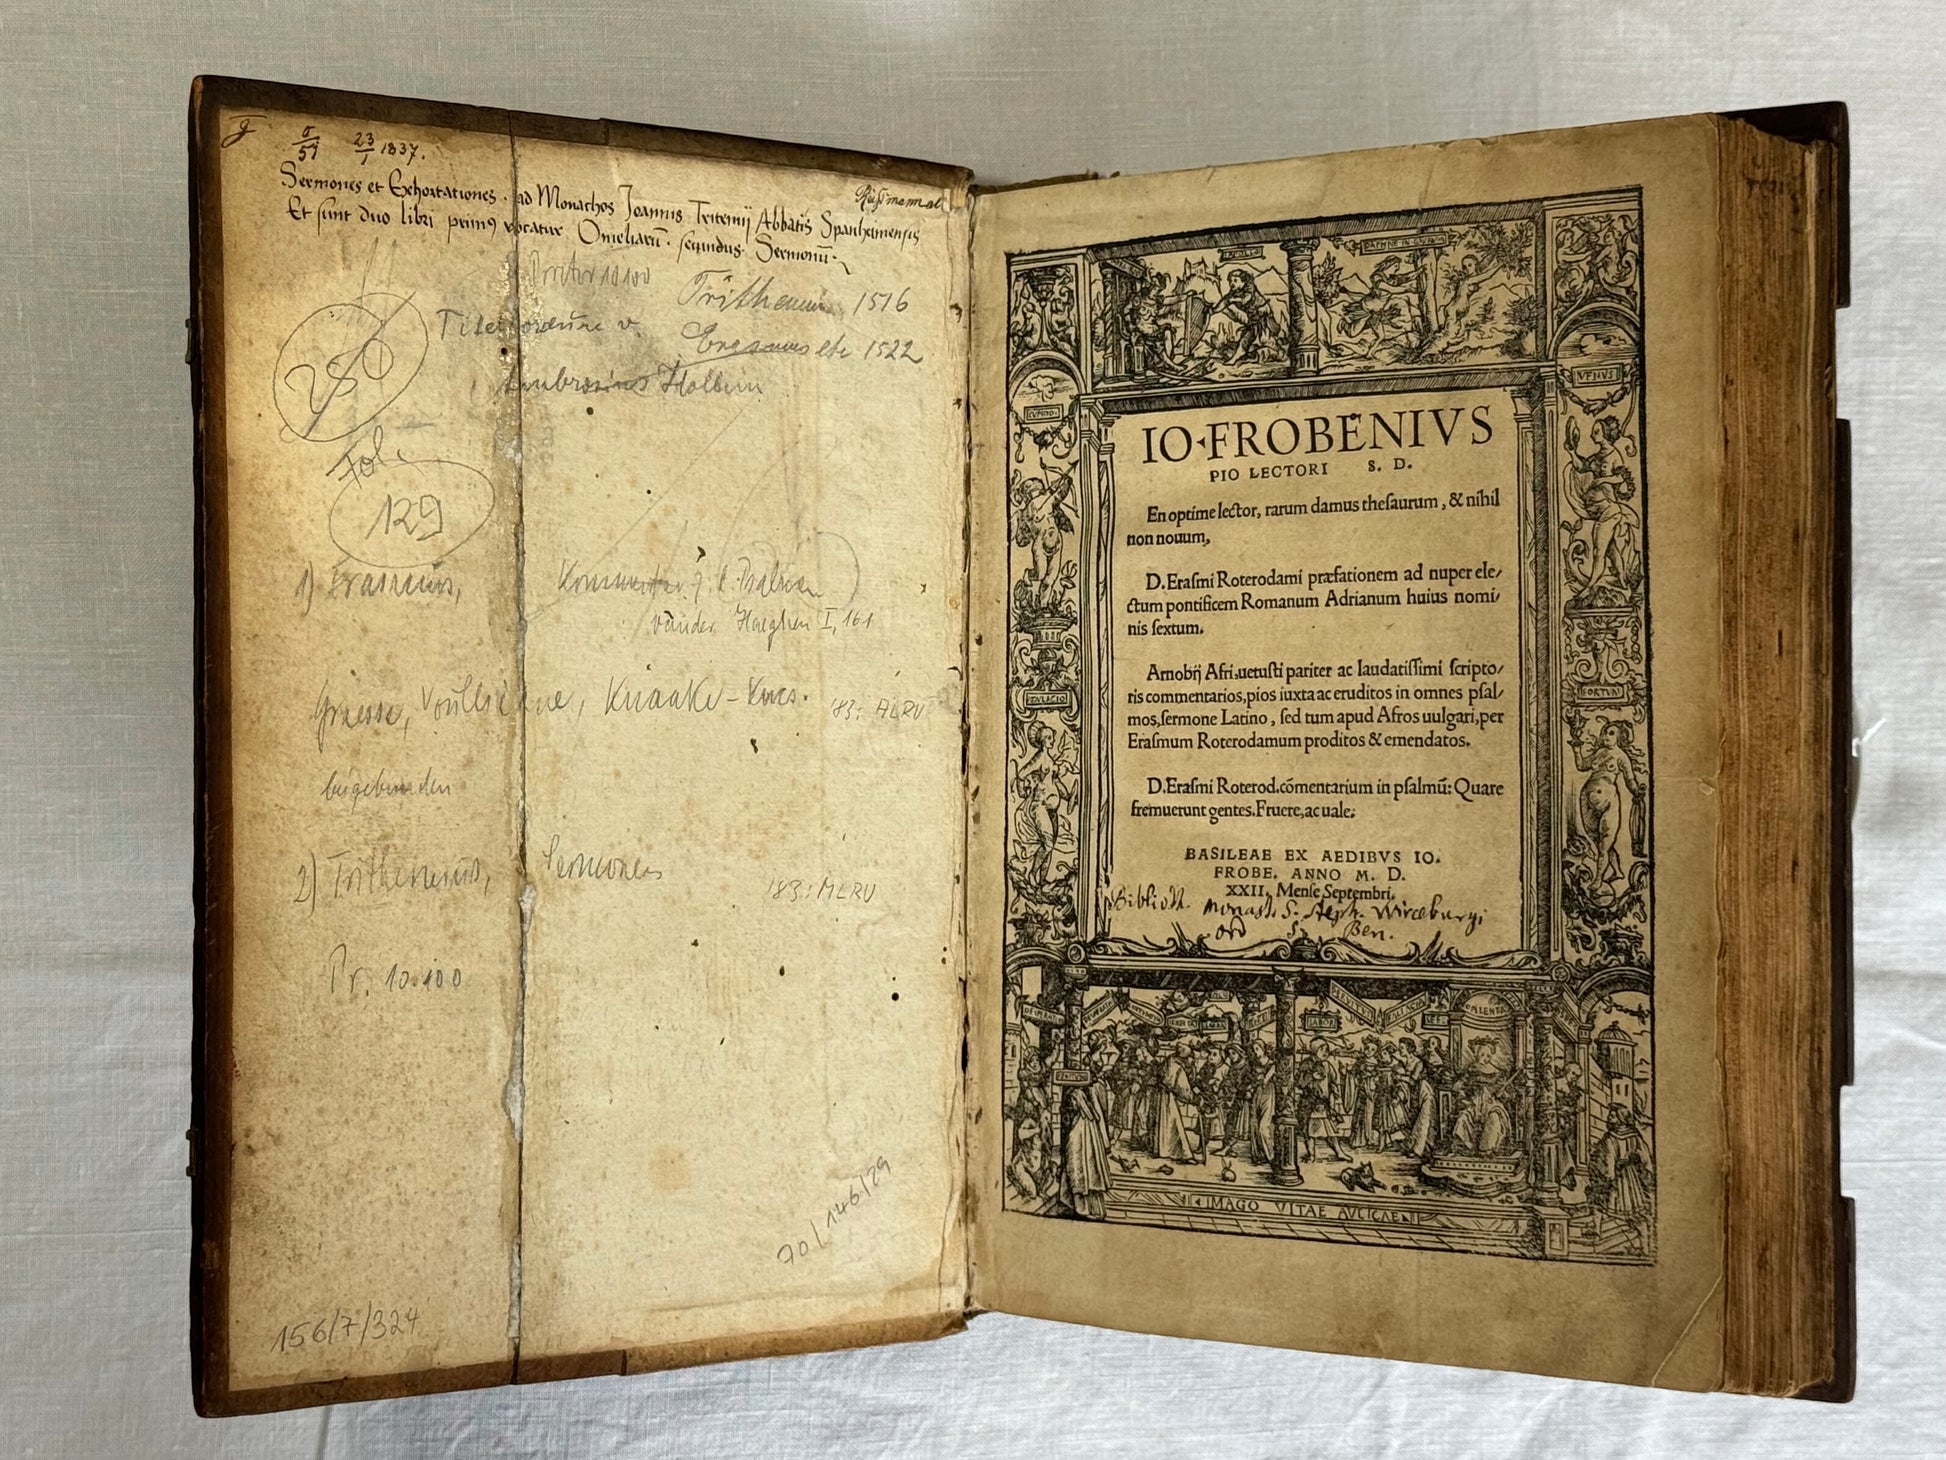 5/59 23/1 1837.
Sermones et Exhortationes. ad Monachos Joannis Tritemij Abbatis Spanheimensis
Et sunt duo libri primus vocatur Omeliarū. secundus. Sermonū.
Proctor 10100
Trithemius 1516
Titelbordüre v. Erasmus etc 1522
Ambrosius Holbein
250
Fol.
129
1) Erasmus, Kommentar z. d. Psalmen
vander Haeghen I, 161
Graesse, Voullième, Knaake-Kats. 183: MLRV
beigebunden
2) Trithemius, Sermones 183: MLRV
Pr. 10.100
70/146/29
156/7/324
IO·FROBENIVS
PIO LECTORI S. D.
En optime lector, rarum damus thesaurum, & nihil
non nouum,
D. Erasmi Roterodami præfationem ad nuper ele/
ctum pontificem Romanum Adrianum huius nomi/
nis sextum.
Arnobij Afri, uetusti pariter ac laudatissimi scripto/
ris commentarios, pios iuxta ac eruditos in omnes psal/
mos, sermone Latino, sed tum apud Afros uulgari, per
Erasmum Roterodamum proditos & emendatos.
D. Erasmi Roterod. cōmentarium in psalmū: Quare
fremuerunt gentes. Fruere, ac uale.
BASILEAE EX AEDIBVS IO.
FROBE. ANNO M. D.
XXII. Mense Septembri.
Biblioth. monast. S. Steph. Wirceburgi
ord S. Ben.
APOLLO
CVPIDO
VENVS
FORTVN
IMAGO VITAE AVLICAE